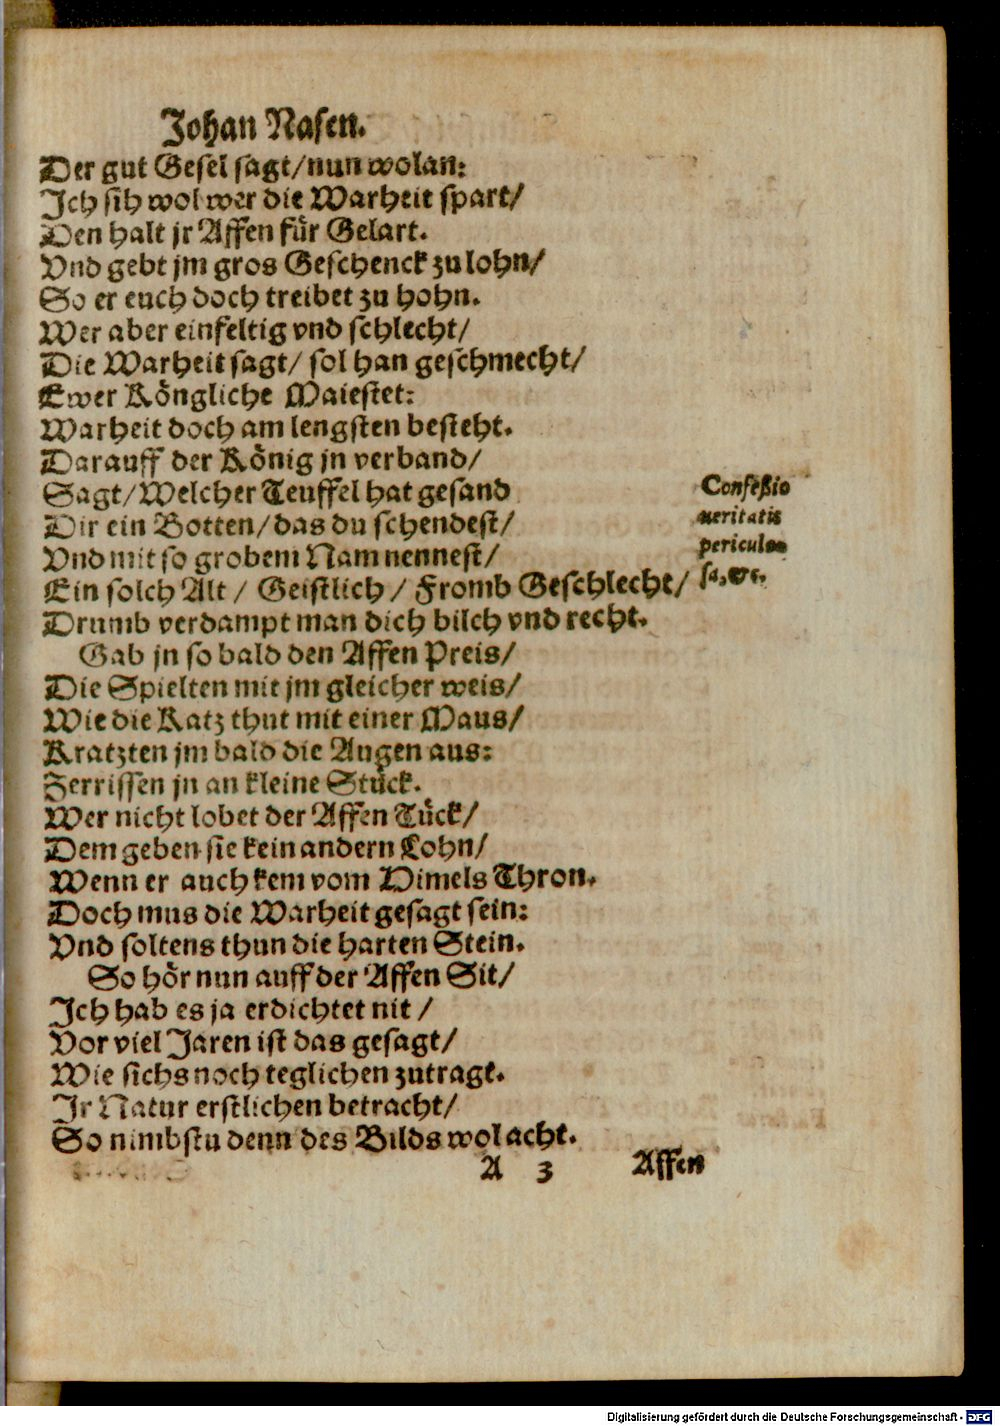 Johan Nasen.
Der gut Gesel sagt/nun wolan:
Jch sih wol wer die Warheit spart/
Den halt jr Affen für Gelart.
Vnd gebt jm gros Geschenck zu lohn/
So er euch doch treibet zu hohn.
Wer aber einfeltig vnd schlecht/
Die Warheit sagt/ sol han geschmecht/
Ewer Köngliche Maiestet:
Warheit doch am lengsten besteht.
Darauff der König jn verband/
Sagt/Welcher Teuffel hat gesand
Dir ein Botten/das du schendest/
Vnd mit so grobem Nam nennest/
Ein solch Alt / Geistlich / Fromb Geschlecht/
Drumb verdampt man dich bilch vnd recht.
Confeßio
ueritatis
periculo-
sa, &c.
Gab jn so bald den Affen Preis/
Die Spielten mit jm gleicher weis/
Wie die Katz thut mit einer Maus/
Kratzten jm bald die Augen aus:
Zerrissen jn an kleine Stück.
Wer nicht lobet der Affen Tück/
Dem geben sie kein andern Lohn/
Wenn er auch kem vom Himels Thron.
Doch mus die Warheit gesagt sein:
Vnd soltens thun die harten Stein.
So hör nun auff der Affen Sit/
Jch hab es ja erdichtet nit /
Vor viel Jaren ist das gesagt/
Wie sichs noch teglichen zutragt.
Jr Natur erstlichen betracht/
So nimbstu denn des Bilds wol acht.
A 3 Affen
Digitalisierung gefördert durch die Deutsche Forschungsgemeinschaft - DFG